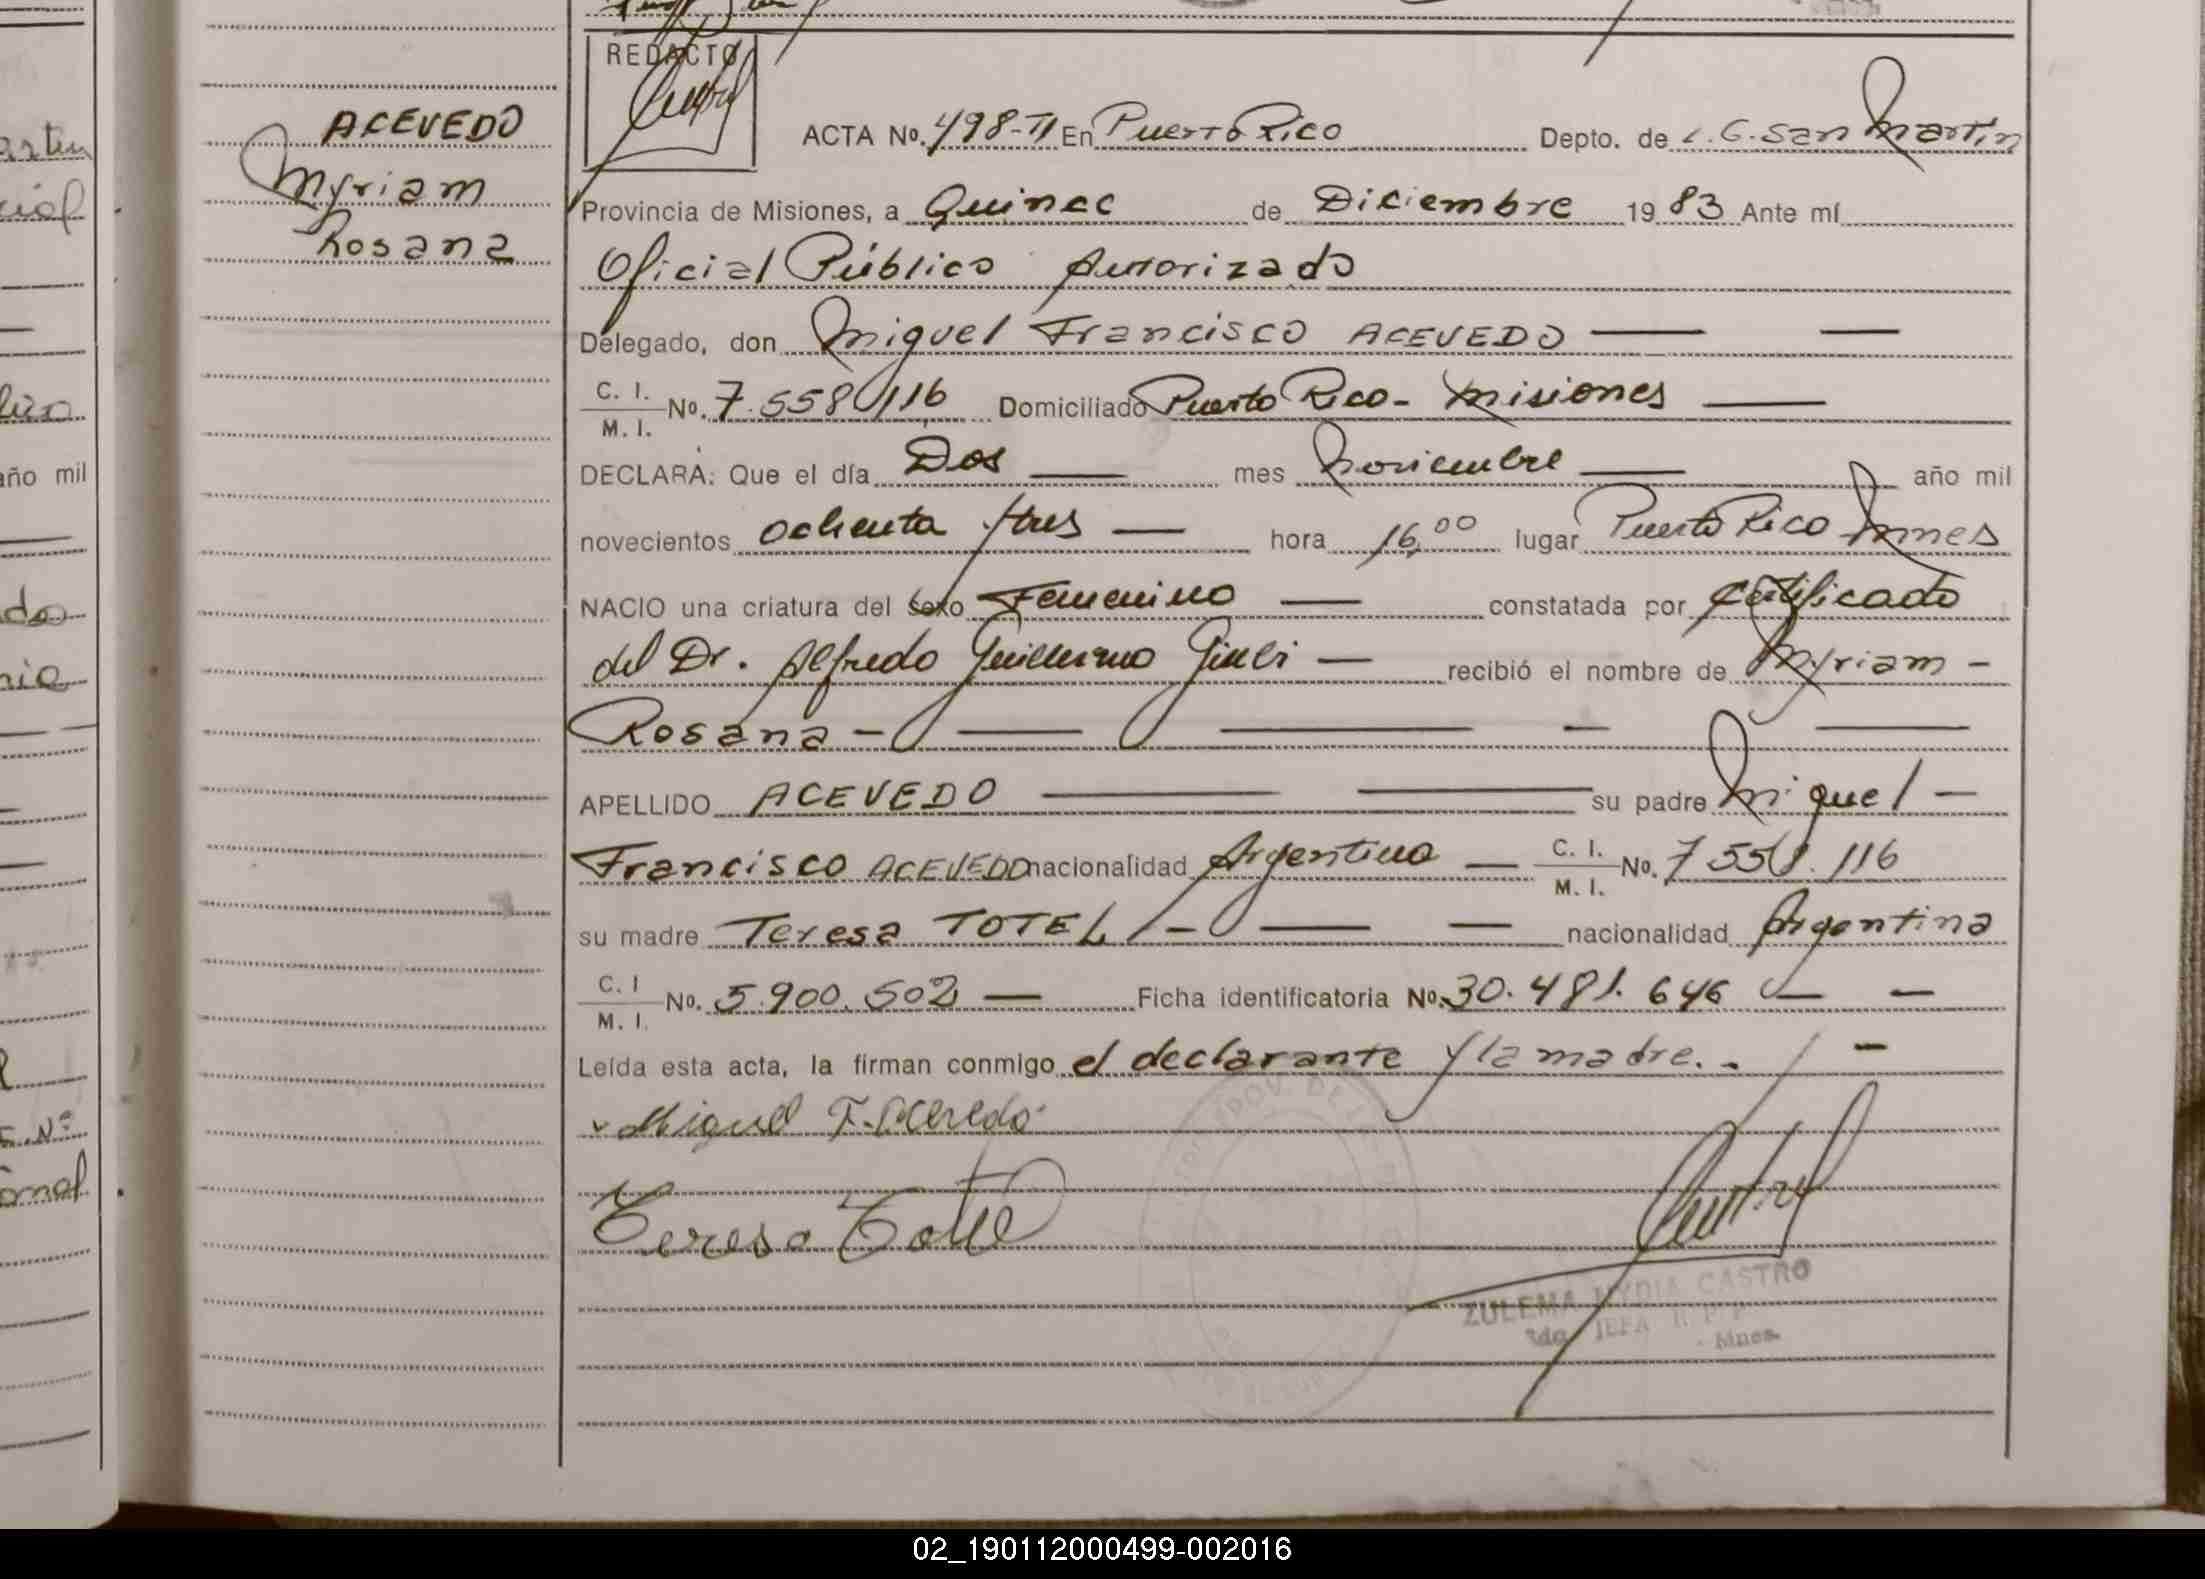 REDACTO
ACEVEDO
Myriam
Rosana
ACTA No. 498-TI En Puerto Rico Depto. de L.G. San Martín
Provincia de Misiones, a Quince de Diciembre 19 83 Ante mí
Oficial Público Autorizado
Delegado, don Miguel Francisco ACEVEDO
C. I. / M. I. No. 7.558.116 Domiciliado Puerto Rico - Misiones
DECLARA: Que el día Dos mes Noviembre año mil
novecientos ochenta y tres hora 16,00 lugar Puerto Rico Mnes
NACIO una criatura del sexo Femenino constatada por certificado
del Dr. Alfredo Guillermo recibió el nombre de Myriam -
Rosana -
APELLIDO ACEVEDO su padre Miguel -
Francisco ACEVEDO nacionalidad Argentina C. I. / M. I. No. 7558.116
su madre Teresa TOTEL - nacionalidad Argentina
C. I / M. I. No. 5.900.502 Ficha identificatoria No. 30.481.646
Leída esta acta, la firman conmigo el declarante y la madre. -
Miguel F. Acevedo
Teresa
ZULEMA NYDIA CASTRO
JEFA
Mnes.
año mil
02_190112000499-002016